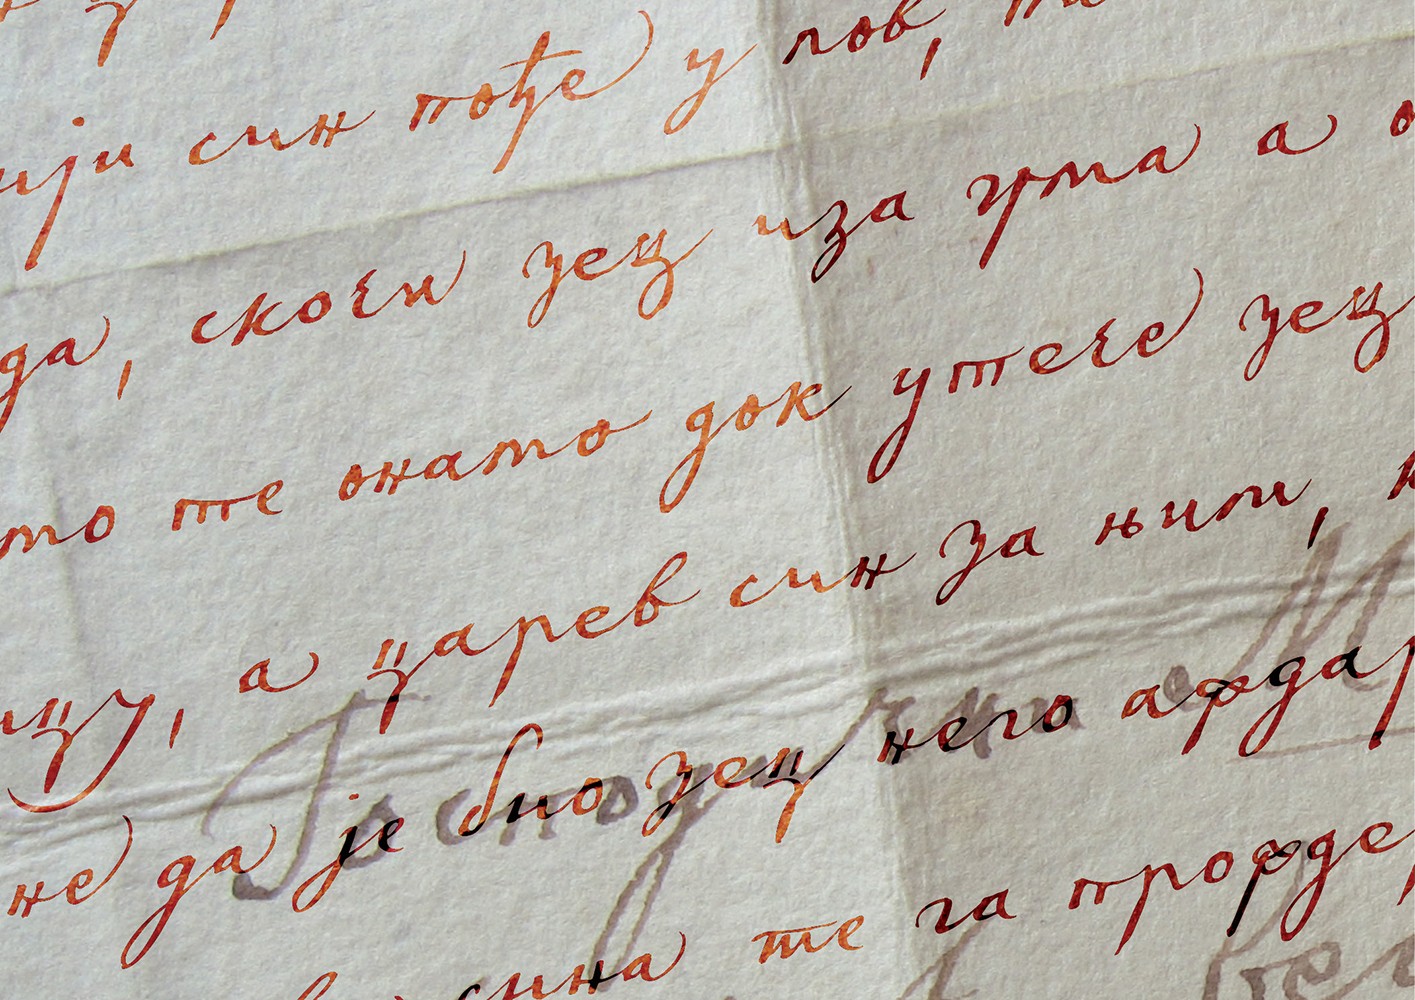 ији син пође у лов, па
да, скочи зец иза грма а о
мо те онамо док утече зец
ицу, а царев син за њим, к
не да је био зец него аждај
сина те га прожде